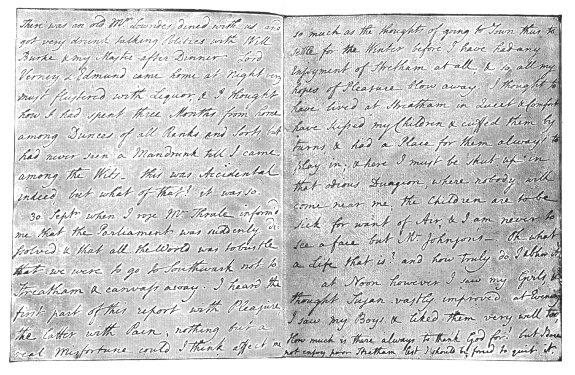 There was an old Mr Lowndes dined with us and
got very drunk talking Politics with Will
Burke & my Master after Dinner. Lord
Verney & Edmund came home at Night very
much flustered with Liquor & I thought
how I had spent three Months from home
among Dunces of all Ranks and Sorts but
had never seen a Man drunk till I came
among the Wits. this was Accidental
indeed but what of that? it was so.
30. Septr when I rose Mr Thrale inform'd
me that the Parliament was suddenly dis
solved & that all the World was to bustle
that we were to go to Southwark not to
Streatham & canvass away. I heard the
first part of this report with Pleasure
the latter with Pain, nothing but a
real Misfortune could I think affect me
so much as the thought of going to Town thus to
settle for the Winter before I have had any
Enjoyment of Stretham at all & so all my
hopes of Pleasure flow away. I thought to
have lived at Streatham in Quiet & Comfort
have kissed my Children & cuffed them by
turns & had a Place for them always to
play in, & here I must be shut up in
that odious Dungeon, where nobody will
come near me, the Children are to be
sick for want of Air & I am never to
see a face but Mr Johnson's— Oh what
a life that is! and how truly do I abhor it.
at Noon however I saw my Girls &
thought Susan vastly improved at Evening
I saw my Boys & liked them very well too
How much is there always to thank God for! but I dare
not enjoy poor Stretham lest I should be forced to quit it.